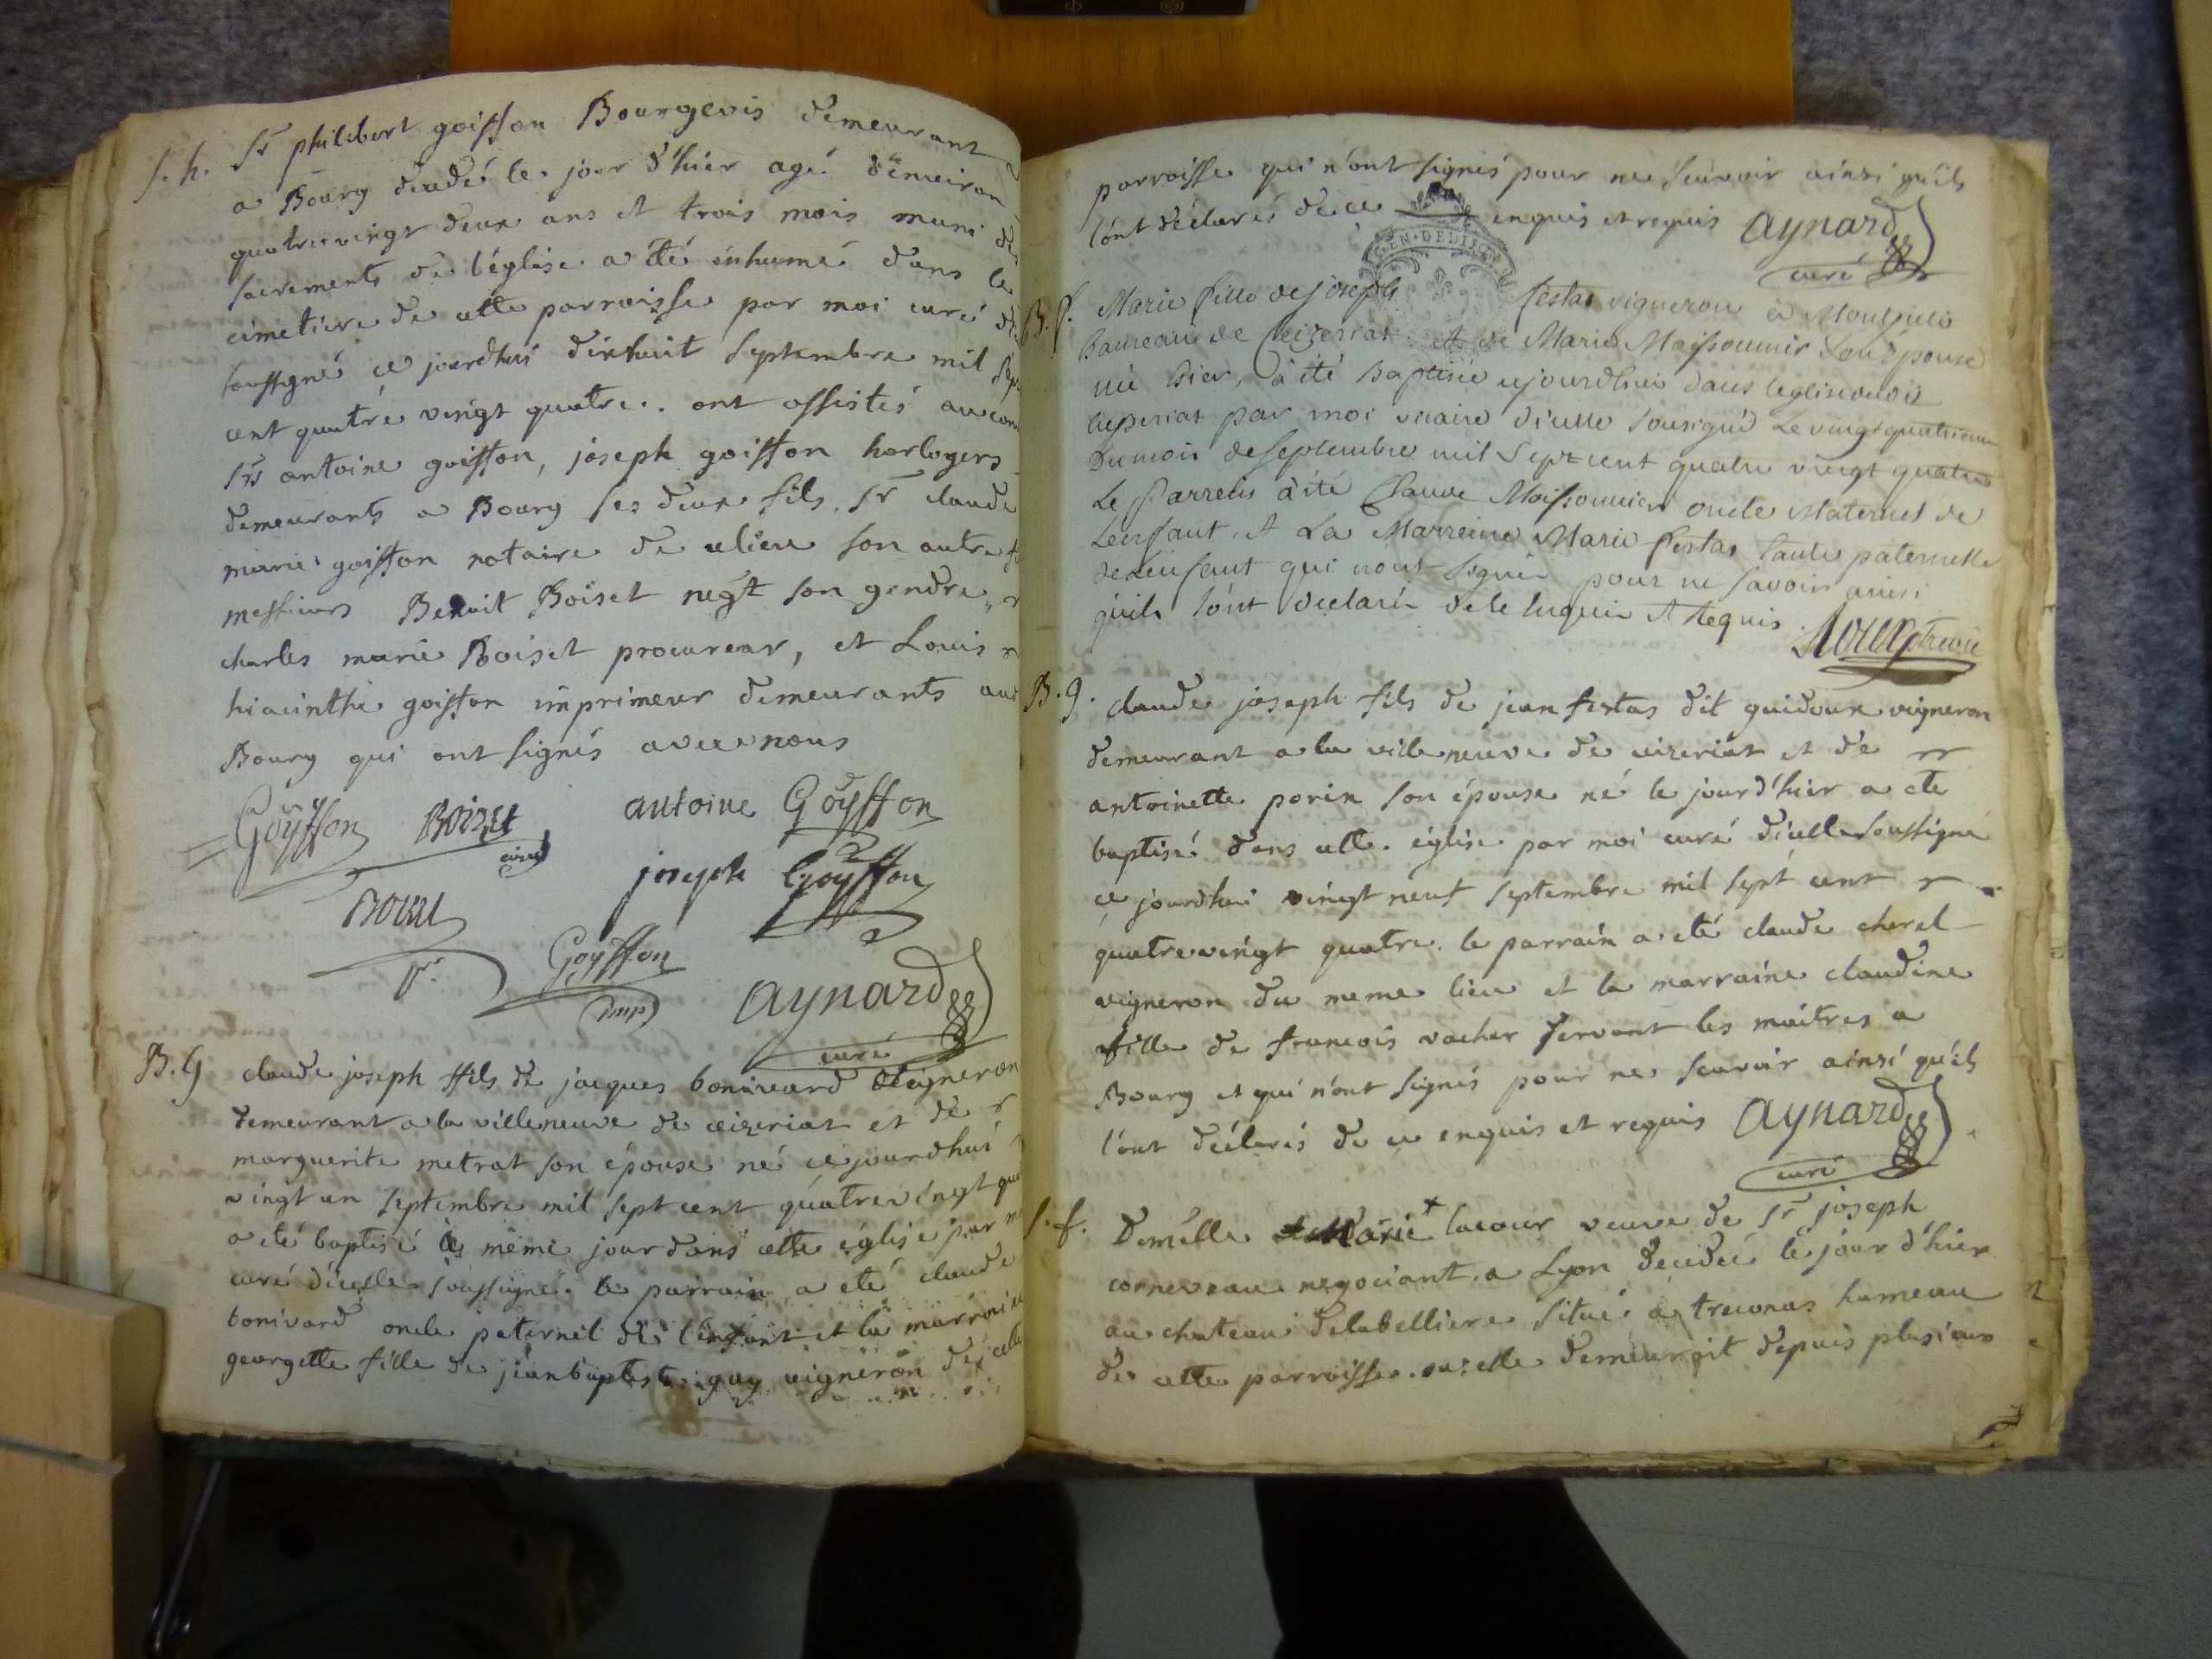 S. h. Sr philibert goisson Bourgeois demeurant
a Bourg decedé le jour d'hier agé d'enviran
quatrevingt deux ans et trois mois muni de
sacrements de l'église a été inhumé dans le
cimetiere de cette parroisse par moi curé
soussigné ce jourdhui dixhuit septembre mil sept
cent quatre vingt quatre. ont assistés au con
Srs antoine goisson, joseph goisson horlogers
demeurants a Bourg ses deux fils, Sr claude
marie goisson notaire de son autre
messieurs Benoit Boiset negt son gendre,
charles marie Boiset procureur, et Louis
hiacinthe goisson imprimeur demeurants aud
Bourg qui ont signés avec nous
Goÿsson Boizet antoine Goÿsson
ainé joseph Goÿsson
Boizet
pr. Goÿsson
imp) aynard
curé
B. G claude joseph fils de jacques bonivard vigneron
demeurant a la villeneuve de ceizeriat et de
marguerite metrat son épouse né ce jourdhui
vingt un septembre mil sept cent quatrevingt qua
a eté baptisé le même jour dans cette église par m
curé d'icelle soussigné. le parrain a eté claude
bonivard oncle paternel de l'enfant et la marraine
georgette fille de jean baptiste guy vigneron de cette
parroisse qui n'ont signés pour ne scavoir ainsi qu'ils
l'ont déclarés de ce enquis et requis aynard
curé
GEN. DE DIJON
B. f. Marie fille de joseph festas vigneron à Montjuli
hameau de Ceizeriat et de Marie Moissonnier son Epouse
née hier, à été Baptisée cejourdhui dans leglise de
Ceyzeriat par moi vicaire d'icelle sousigné Le vingtquatrieme
du mois de septembre mil sept cent quatre vingt quatre
Le Parrein à été Claude Moissonnier oncle Maternel de
Lenfant, et La Marreine Marie festas tante paternelle
de Lenfant qui n'ont signés pour ne savoir ainsi
quils l'ont declarés de ce Enquis et Requis.
vicaire
B. g. claude joseph fils de jean festas dit guidoux vigneron
demeurant a la villeneuve de ceizeriat et de
antoinette porin son épouse né le jour d'hier a eté
baptisé dans cette église par moi curé d'icelle soussigné
ce jourdhui vingt neuf septembre mil sept cent
quatrevingt quatre. le parrain a eté claude cherel
vigneron du meme lieu et la marraine claudine
fille de francois vacher servant les maîtres a
Bourg et qui n'ont signés pour ne scavoir ainsi qu'ils
l'ont déclarés de ce enquis et requis aynard
curé
S. f. Demelle Marie lacour veuve de Sr joseph
corneveau negociant a Lyon decedée le jour d'hier
au chateau delabelliere situé a treconas hameau
de cette parroisse. ou elle demeuroit depuis plusieurs